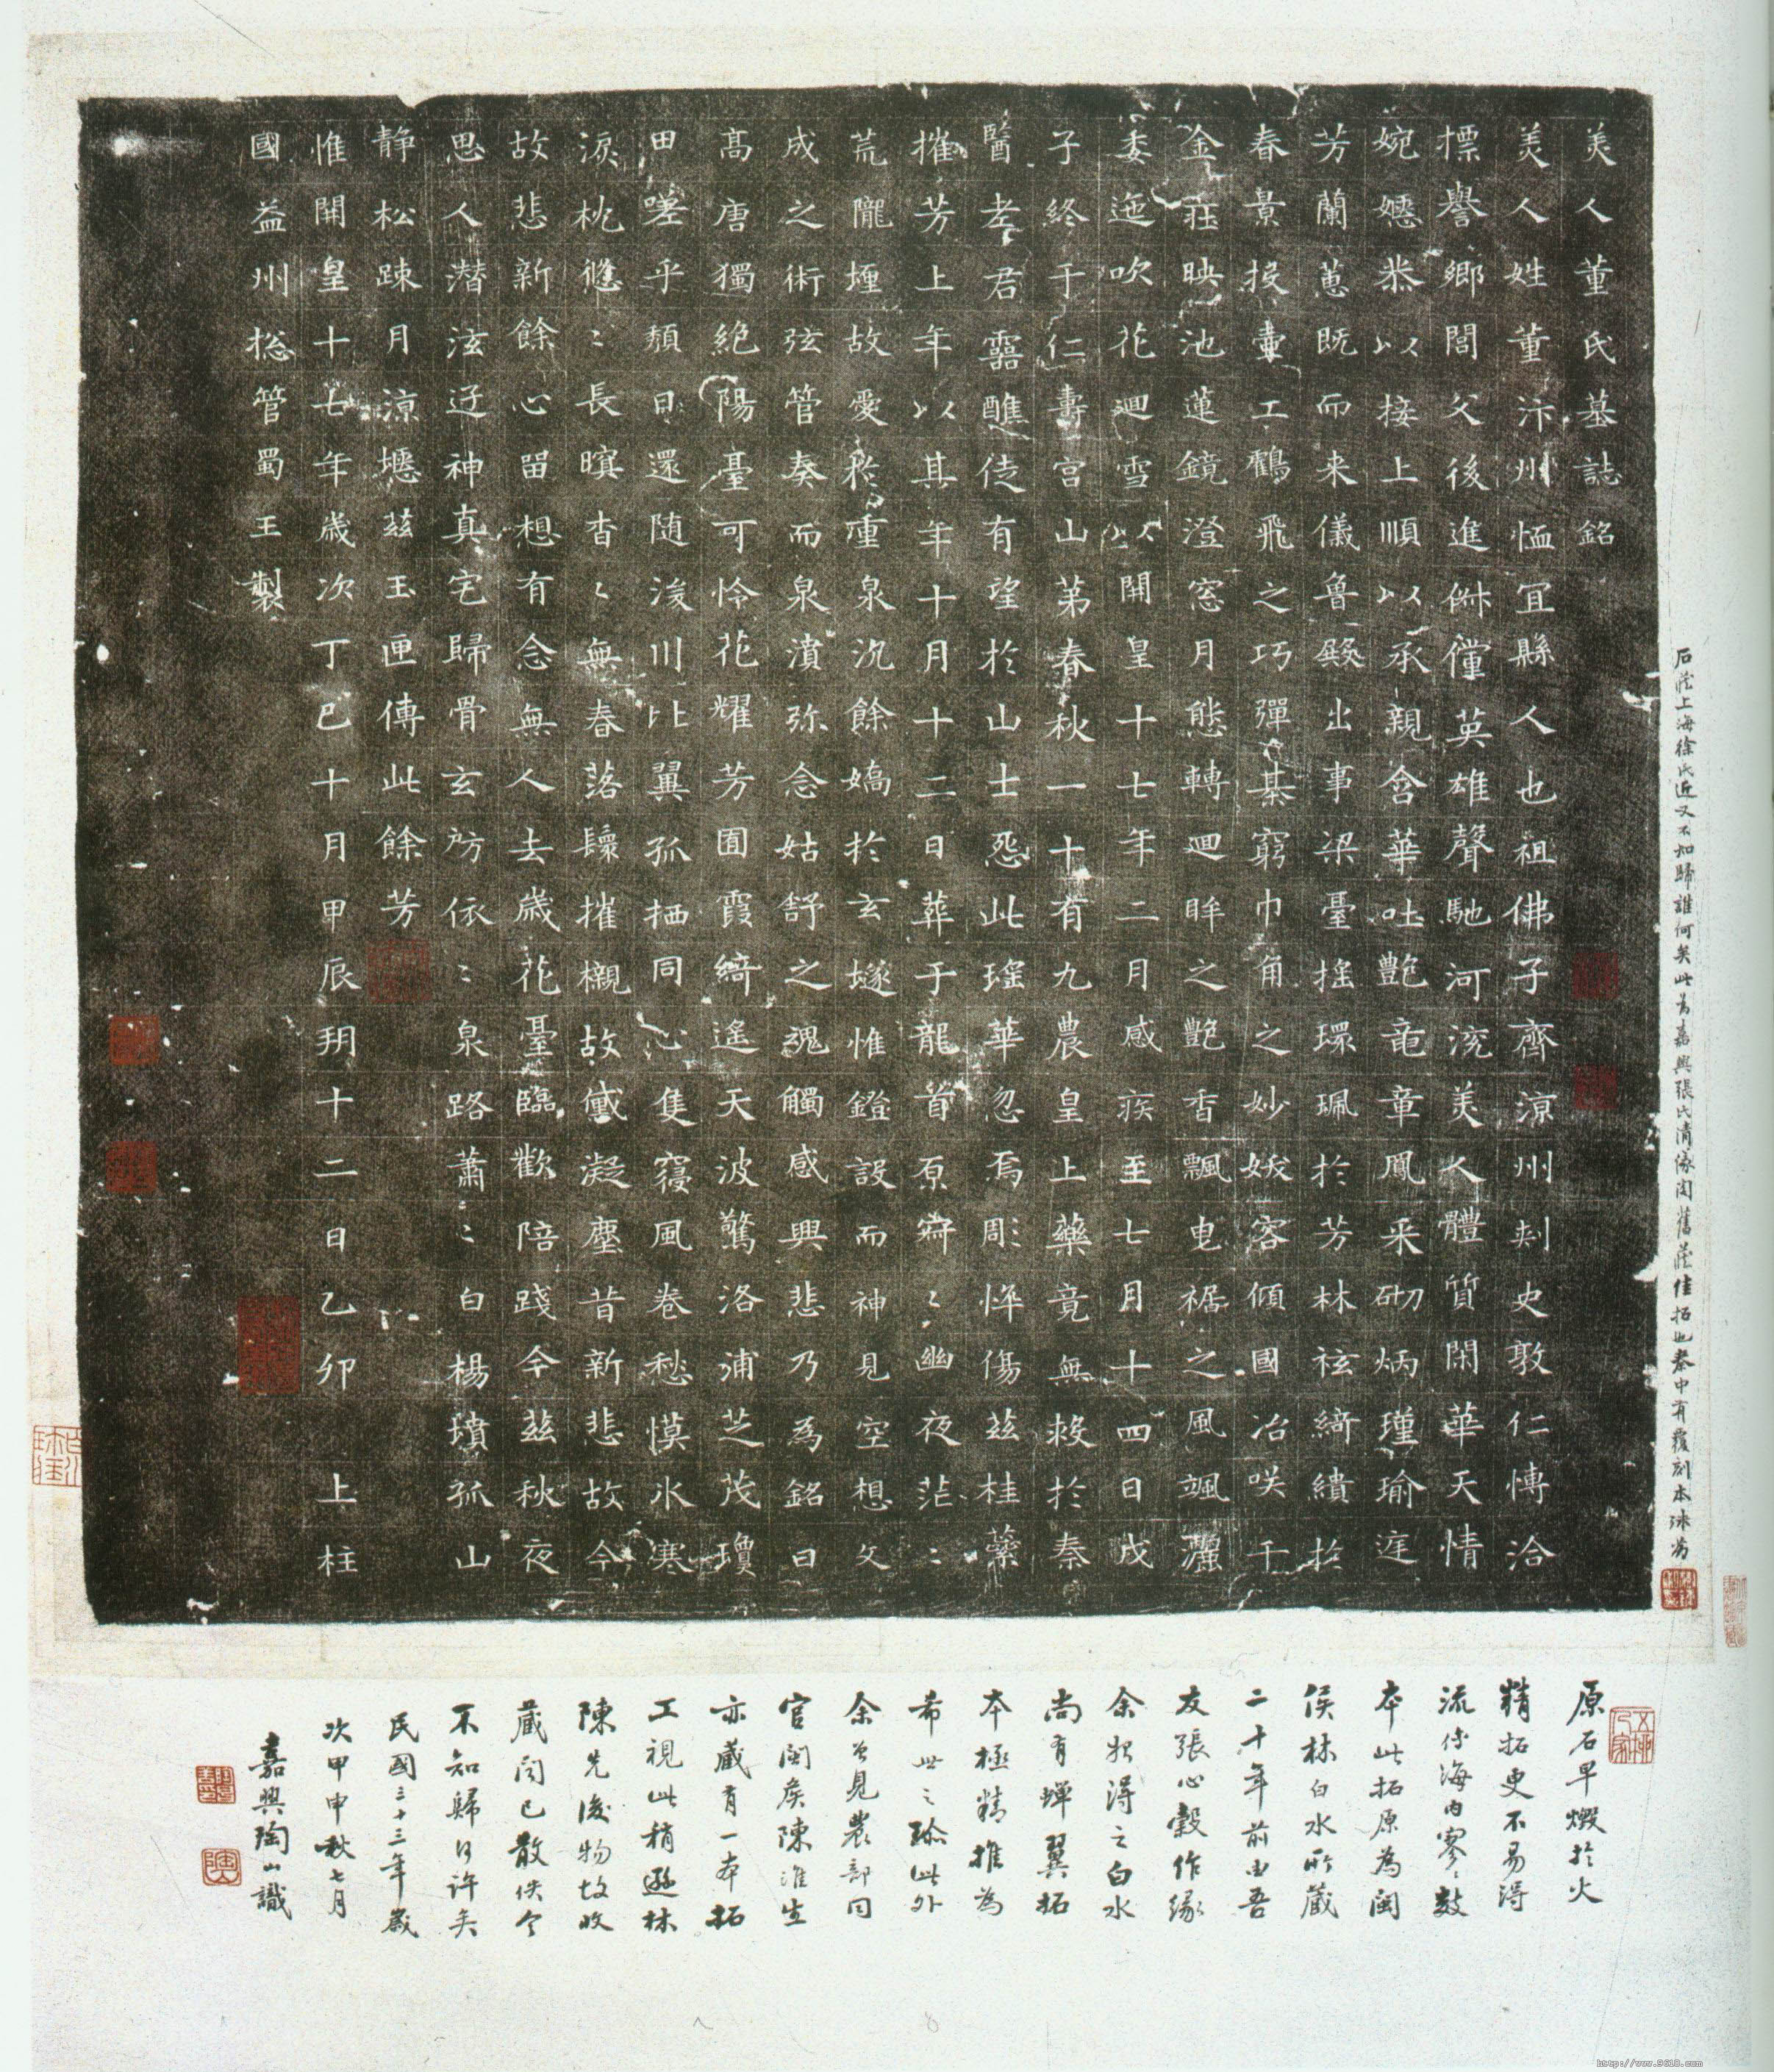 美人董氏墓誌銘
美人姓董汴州恤冝縣人也祖佛子齊涼州刾史敦仁慱洽
摽譽鄉閭父後進俶儻英雄聲馳河渷美人體質閑華天情
婉嫕恭以接上順以承親含華吐艷竜章鳳采砌炳瑾瑜庭
芳蘭蕙既而来儀魯殿出事梁臺摇環珮於芳林袨綺繢於
春景投壷工鶴飛之巧彈棊窮巾角之妙妖容傾國冶咲千
金莊映池蓮鏡澄窓月態轉迴眸之艷香飄曳裾之風颯灑
委迤吹花迴雪以開皇十七年二月感疾至七月十四日戊
子終于仁壽宮山第春秋一十有九農皇上藥竟無救於秦
醫老君靈醮徒有望於山士怨此瑤華忽焉彫悴傷茲桂蘂
摧芳上年以其年十月十二日葬于龍首原寂〻幽夜茫〻
荒隴埋故愛於重泉沉餘嬌於玄墜惟鐙設而神見空想文
成之術弦管奏而泉濆弥念姑舒之魂觸感興悲乃為銘曰
髙唐獨絶陽臺可怜花耀芳囿霞綺遙天波驚洛浦芝茂瓊
田嗟乎頹日還随浚川比翼孤栖同心隻寢風卷愁慔氷寒
淚枕悠〻長瞑杳〻無春落鬟摧櫬故黛凝塵昔新悲故今
故悲新餘心留想有念無人去歲花臺臨歡陪踐今茲秋夜
思人潛泫迂神真宅歸骨玄房依〻泉路蕭〻白楊墳孤山
静松踈月涼壥茲玉匣傳此餘芳
惟開皇十七年歲次丁巳十月甲辰玥十二日乙卯上柱
國益州揔管蜀王製
石舊藏上海徐氏近又不知歸誰何矣此為嘉興張氏清儀閣舊藏佳拓也秦中有覆刻本殊劣
原石早燬於火
精拓更不易得
流傳海内寥〻數
本此拓原為閩
侯林白水所藏
二十年前由吾
友張心穀作缘
余始得之白水
尚有蟬翼拓
本極精推為
希世之珍此外
余曾見農部同
官閩侯陳淮生
亦藏有一本拓
工視此稍遜林
陳先後物故收
藏聞已散佚今
不知歸何許矣
民國三十三年歲
次甲申秋七月
嘉興陶山識
http://www.9610.com